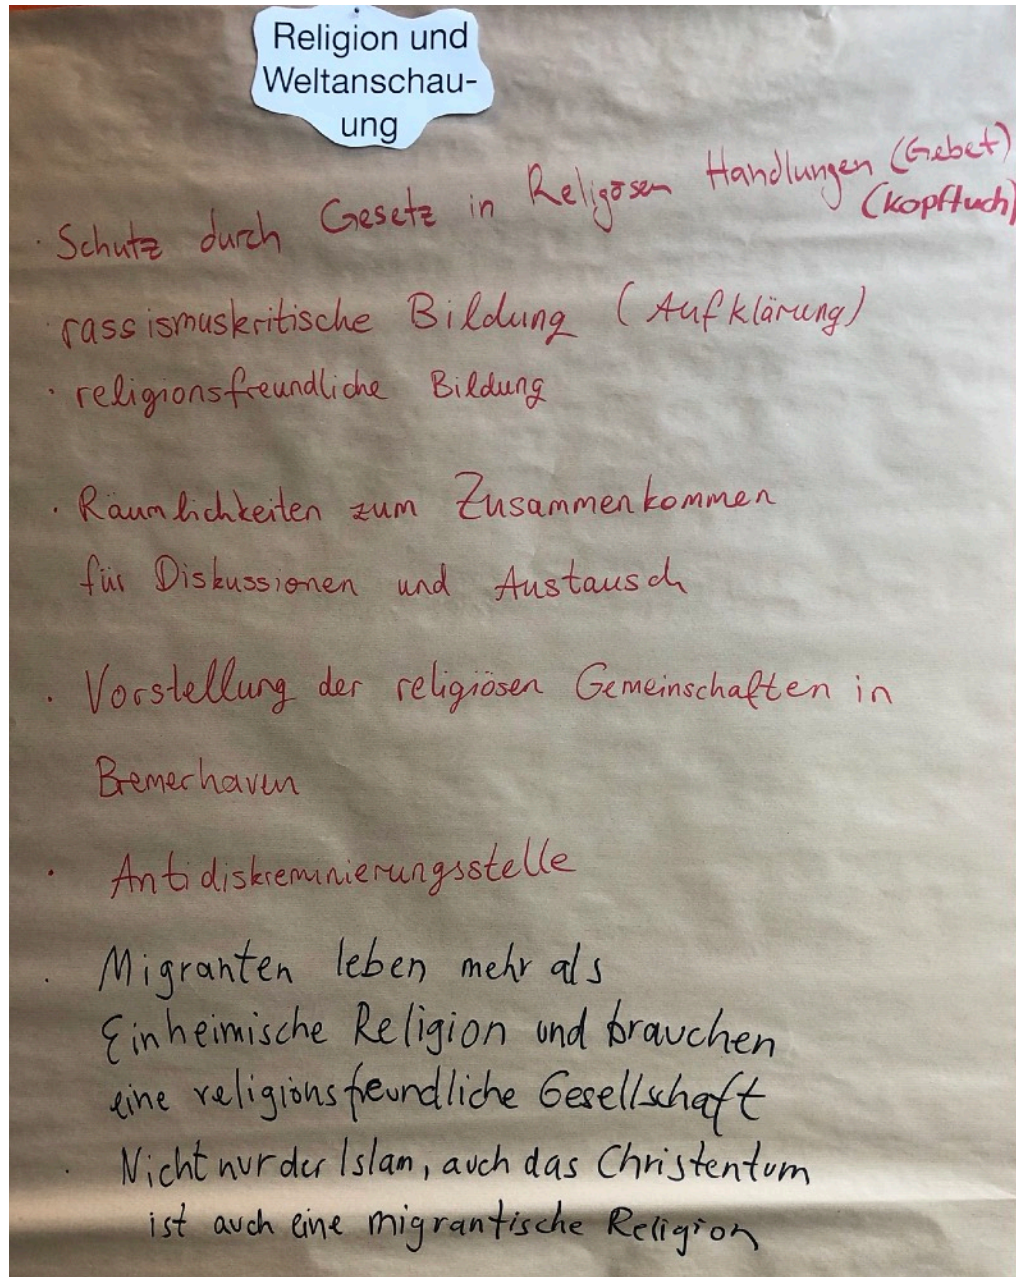 Religion und
Weltanschau-
ung
· Schutz durch Gesetz in Religösen Handlungen (Gebet)
(Kopftuch)
· rassismuskritische Bildung (Aufklärung)
· religionsfreundliche Bildung
· Räumlichkeiten zum Zusammenkommen
für Diskussionen und Austausch
· Vorstellung der religiösen Gemeinschaften in
Bremerhaven
· Antidiskreminierungsstelle
· Migranten leben mehr als
Einheimische Religion und brauchen
eine religionsfreundliche Gesellschaft
· Nicht nur der Islam, auch das Christentum
ist auch eine migrantische Religion